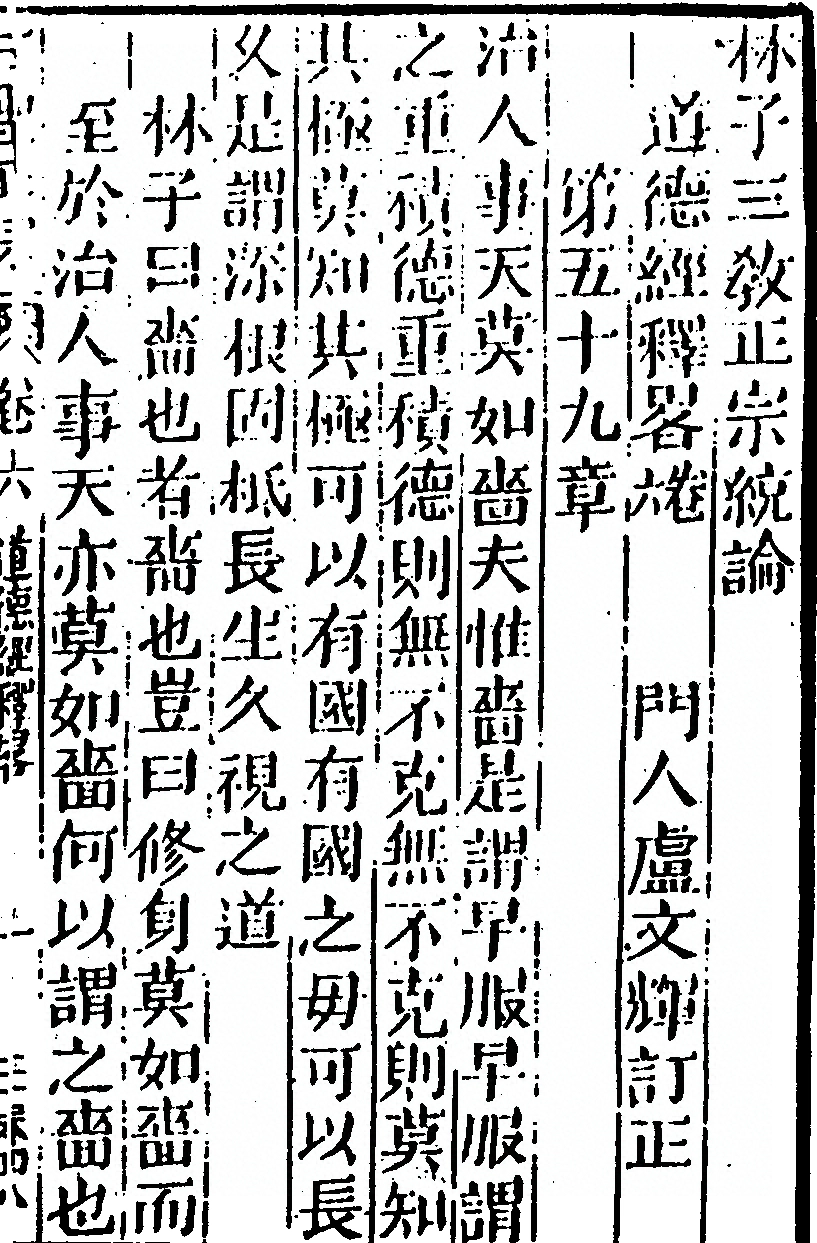 林子三敎正宗統論
道德經釋畧卷六　門人盧文輝訂正
第五十九章
治人事天莫如嗇夫惟嗇是謂早服早服謂
之重積德重積德則無不克無不克則莫知
其極莫知其極可以有國有國之毋可以長
久是謂深根固柢長生久視之道
林子曰嗇也者嗇也豈曰修身莫如嗇而
至於治人事天亦莫如嗇何以謂之嗇也
卷六 道德經釋畧 一